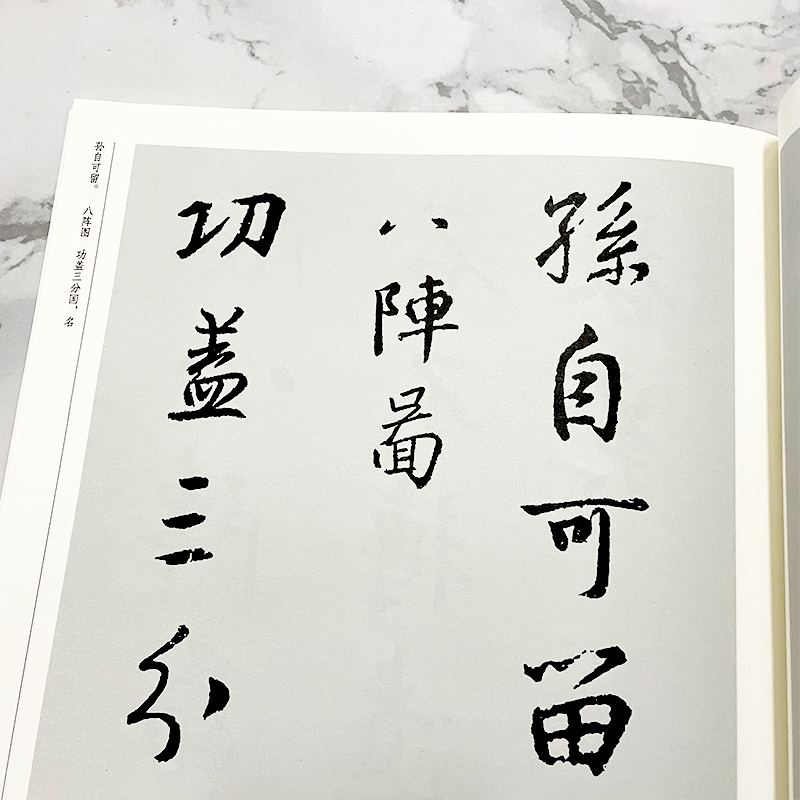 孫自可留
八陣啚
功盖三分
孙自可留。 八阵图 功盖三分国，名